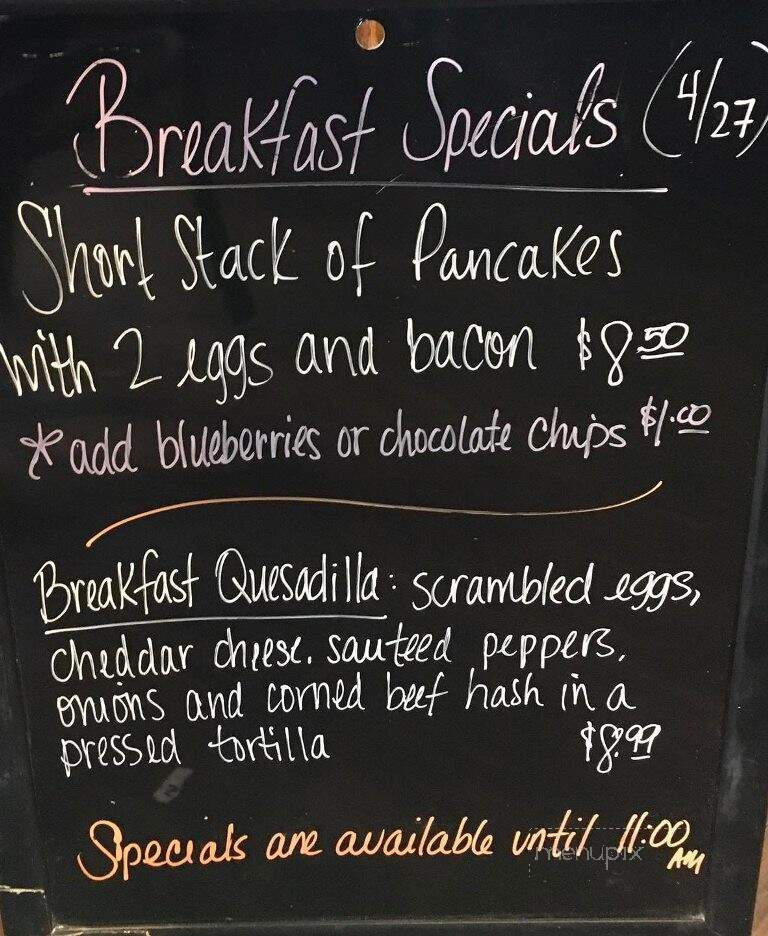 Breakfast Specials (4/27)
Short Stack of Pancakes
with 2 eggs and bacon $8.50
*add blueberries or chocolate chips $1.00
Breakfast Quesadilla: scrambled eggs,
cheddar cheese, sauteed peppers,
onions and corned beef hash in a
pressed tortilla $8.99
Specials are available until 11:00 AM
menupix